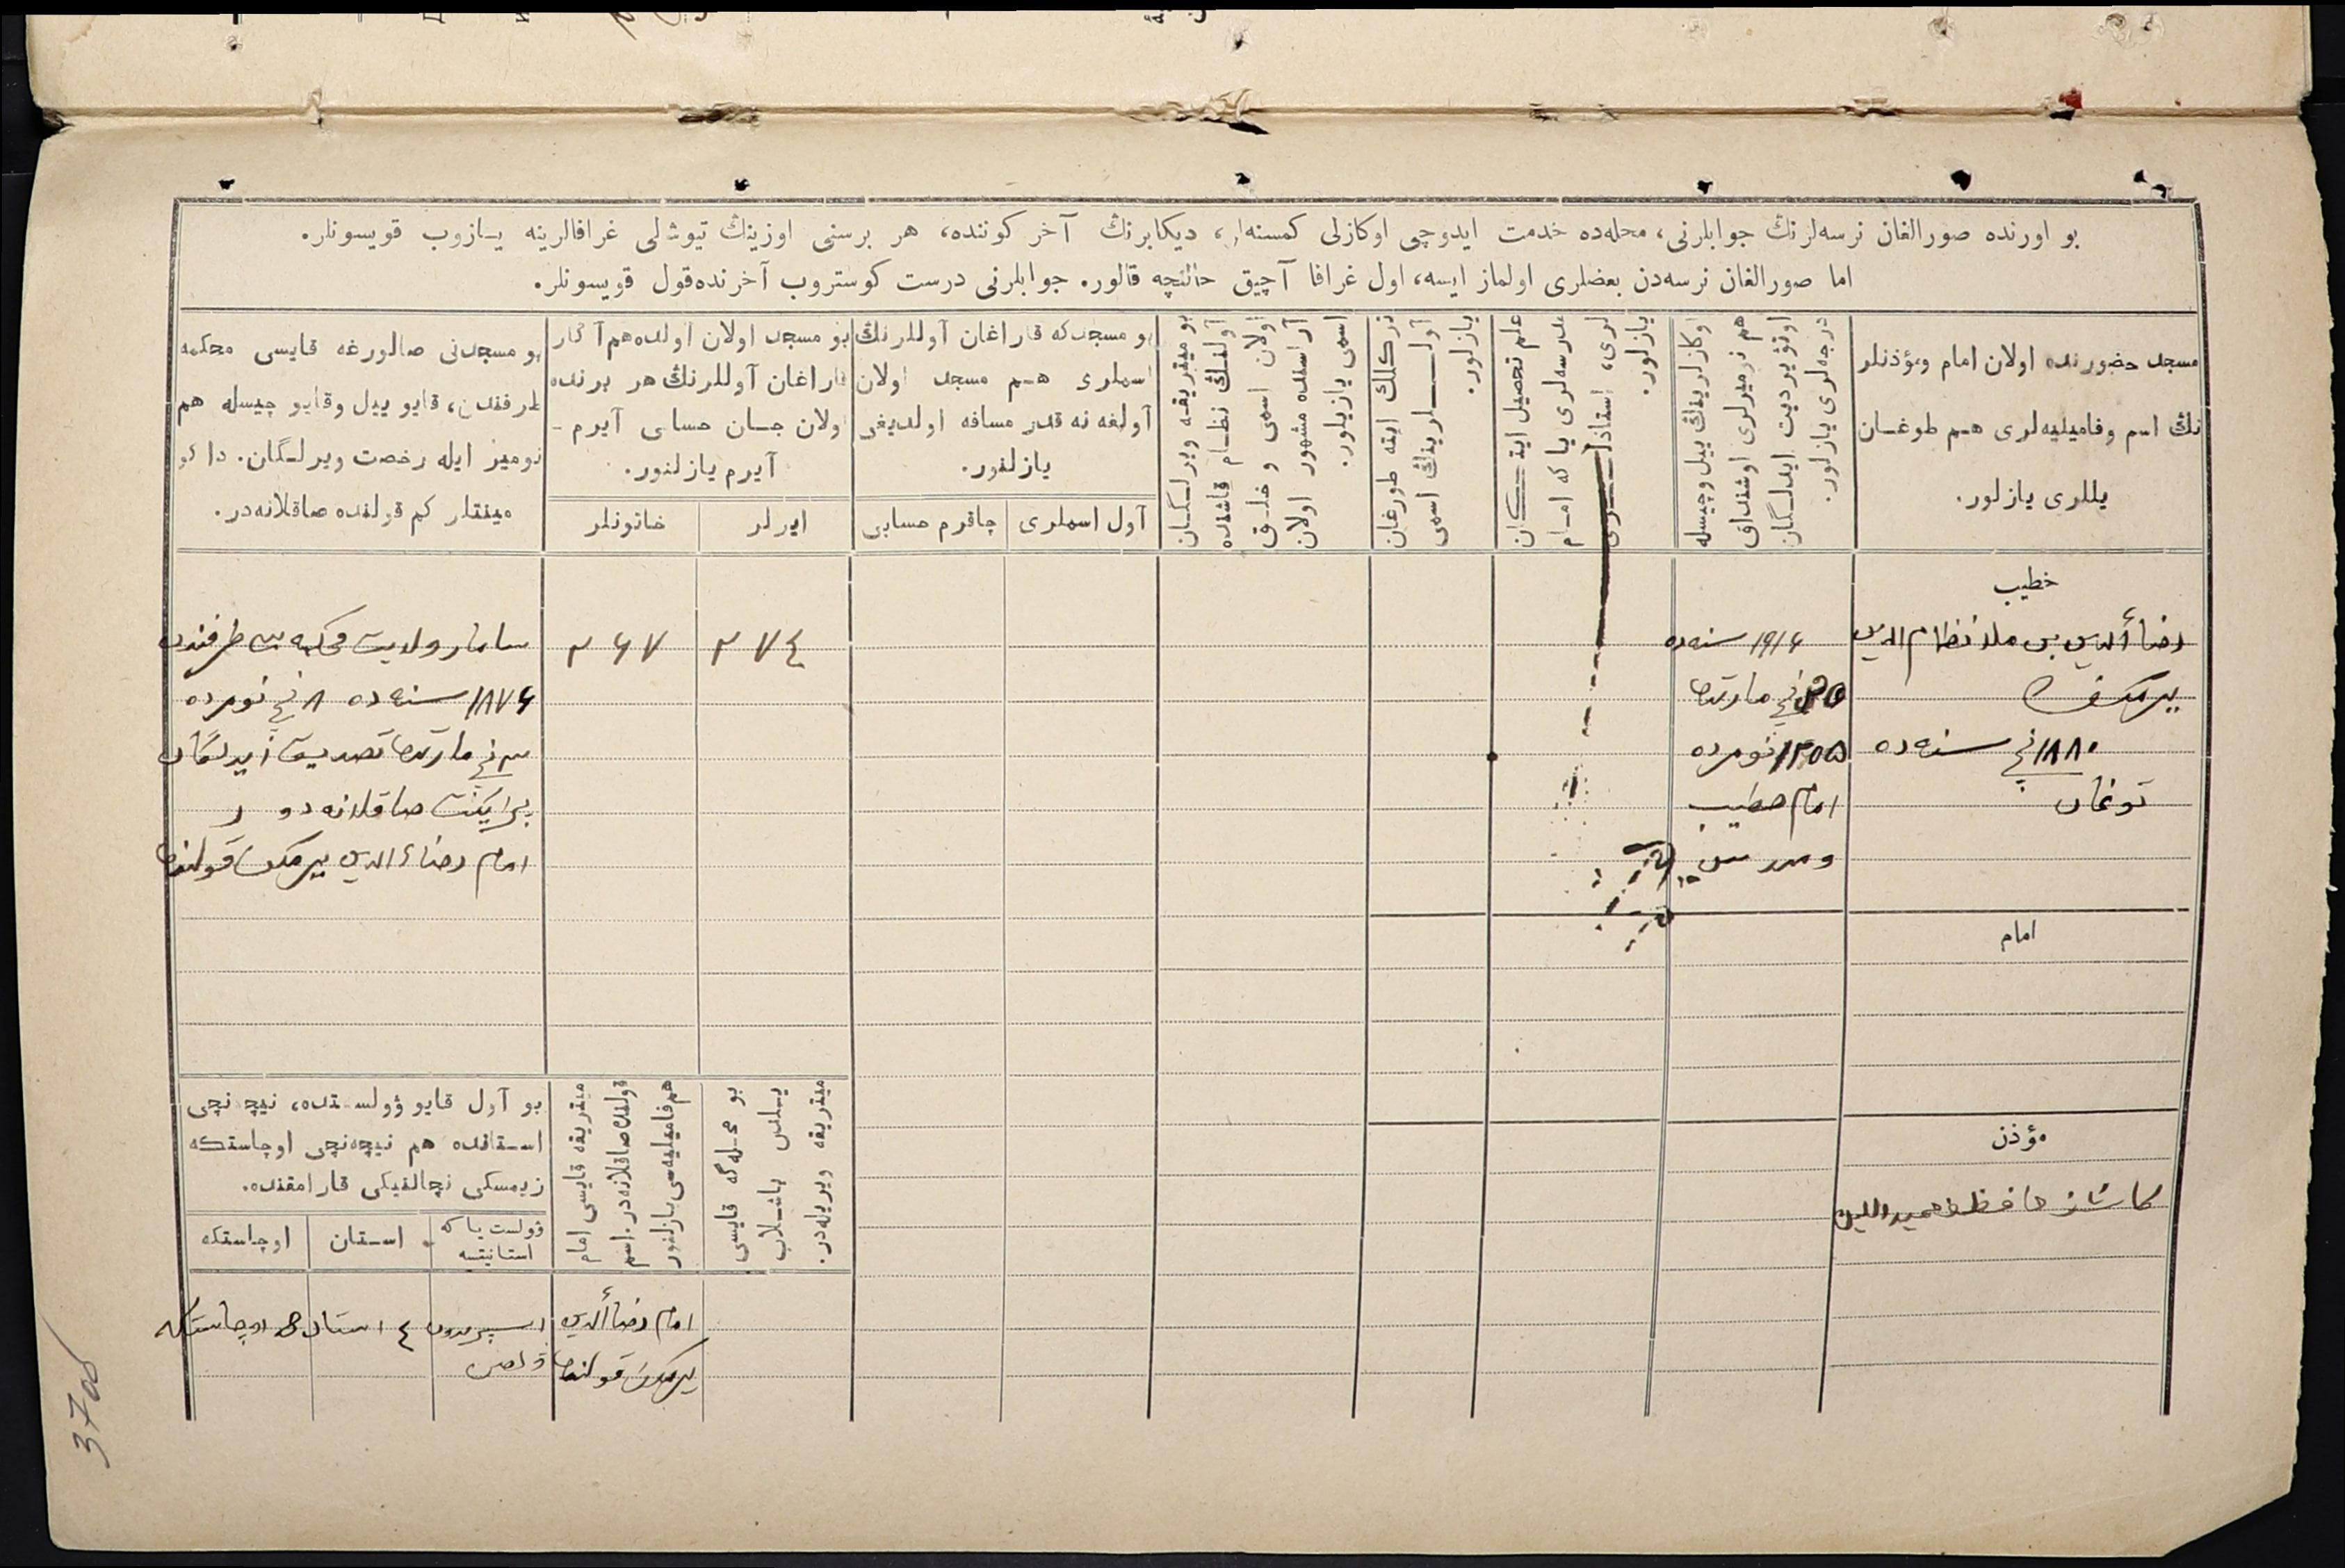 بو اورنده صورالغان نرسه‌لرنڭ جوابلرنی، محله‌ده خدمت ایدوچی اوکازلی کمسنه‌لر، دیکابرنڭ آخر کوننده، هر برسنی اوزینڭ تیوشلی غرافالرینه یازوب قویسونلر.
اما صورالغان نرسه‌دن بعضلری اولماز ایسه، اول غرافا آچیق حالنچه قالور. جوابلرنی درست کوستروب آخرنده قول قویسونلر.
مسجد حضورنده اولان امام ومؤذنلر
نڭ اسم وفامیلیه‌لری هم طوغان
یللری یازلور.
درجه‌لری یازلور.
اوتؤیردیت ایدلگان
هم نومیرلری اوشنداق
اوکازلرینڭ ییل وچیسله
یازلور.
لری، استاذلری
مدرسه‌لری یا که امام
علم تحصیل ایتکان
یازلور.
آوللرینڭ اسمی
نرکلك ایته طورغان
اسمی یازیلور.
آراسنده مشهور اولان
اولان اسمی و خلق
آولنڭ نظام قاشنده
بو میتریقه ویرلگان
بو مسجدکه قاراغان آوللرنڭ
اسملری هم مسجد اولان
آولغه نه قدر مسافه اولدیغی
یازلنور.
آول اسملری
چاقرم حسابی
بو مسجد اولان اولده هم آ کار
قاراغان آوللرنڭ هر برنده
اولان جان حسابی آیرم -
آیرم یازلنور.
ایرلر
خاتونلر
بو مسجدنی صالورغه قایسی محکمه
طرفندن، قایو ییل وقایو چیسله هم
نومیر ایله رخصت ویرلگان. دا کو
مینتلر کم قولنده صاقلانه‌در.
خطیب
رضاء الدین بن ملا نظام الدین
١٨٨٠ نچی سنه ده
توغان
١٩١٤ سنه ده
٢٥ نچی مارتدا
١٢٥٥ نومرده
امام خطیب
ومدرس
٢٧٤
٢٤٧
سامار ولایت محکمه سی طرفندن
١٨٧٤ سنه ده ٨ نچی نومرده
٣ نچی مارتدا تصدیق ایدلگان
صاقلانه دو ر
امام رضاء الدین قولندا
امام
مؤذن
حافظ حمیدالدین
بو محله‌گه قایسی
ییلدن باشلاب
میتریقه ویریله‌در.
میتریقه قایسی امام
قولنده صاقلانه‌در. اسم
هم فامیلیه‌سی یازلنور
بو آول قایو ؤولستده، نیچه نچی
استانده هم نیچه‌نچی اوچاستکه
زیمسکی نچالنیکی قارامقنده.
ؤولست یا که
استانیتسه
استان
اوچاستکه
امام رضاءالدین
قولندا
٤ استان
اوچاستکه
37об